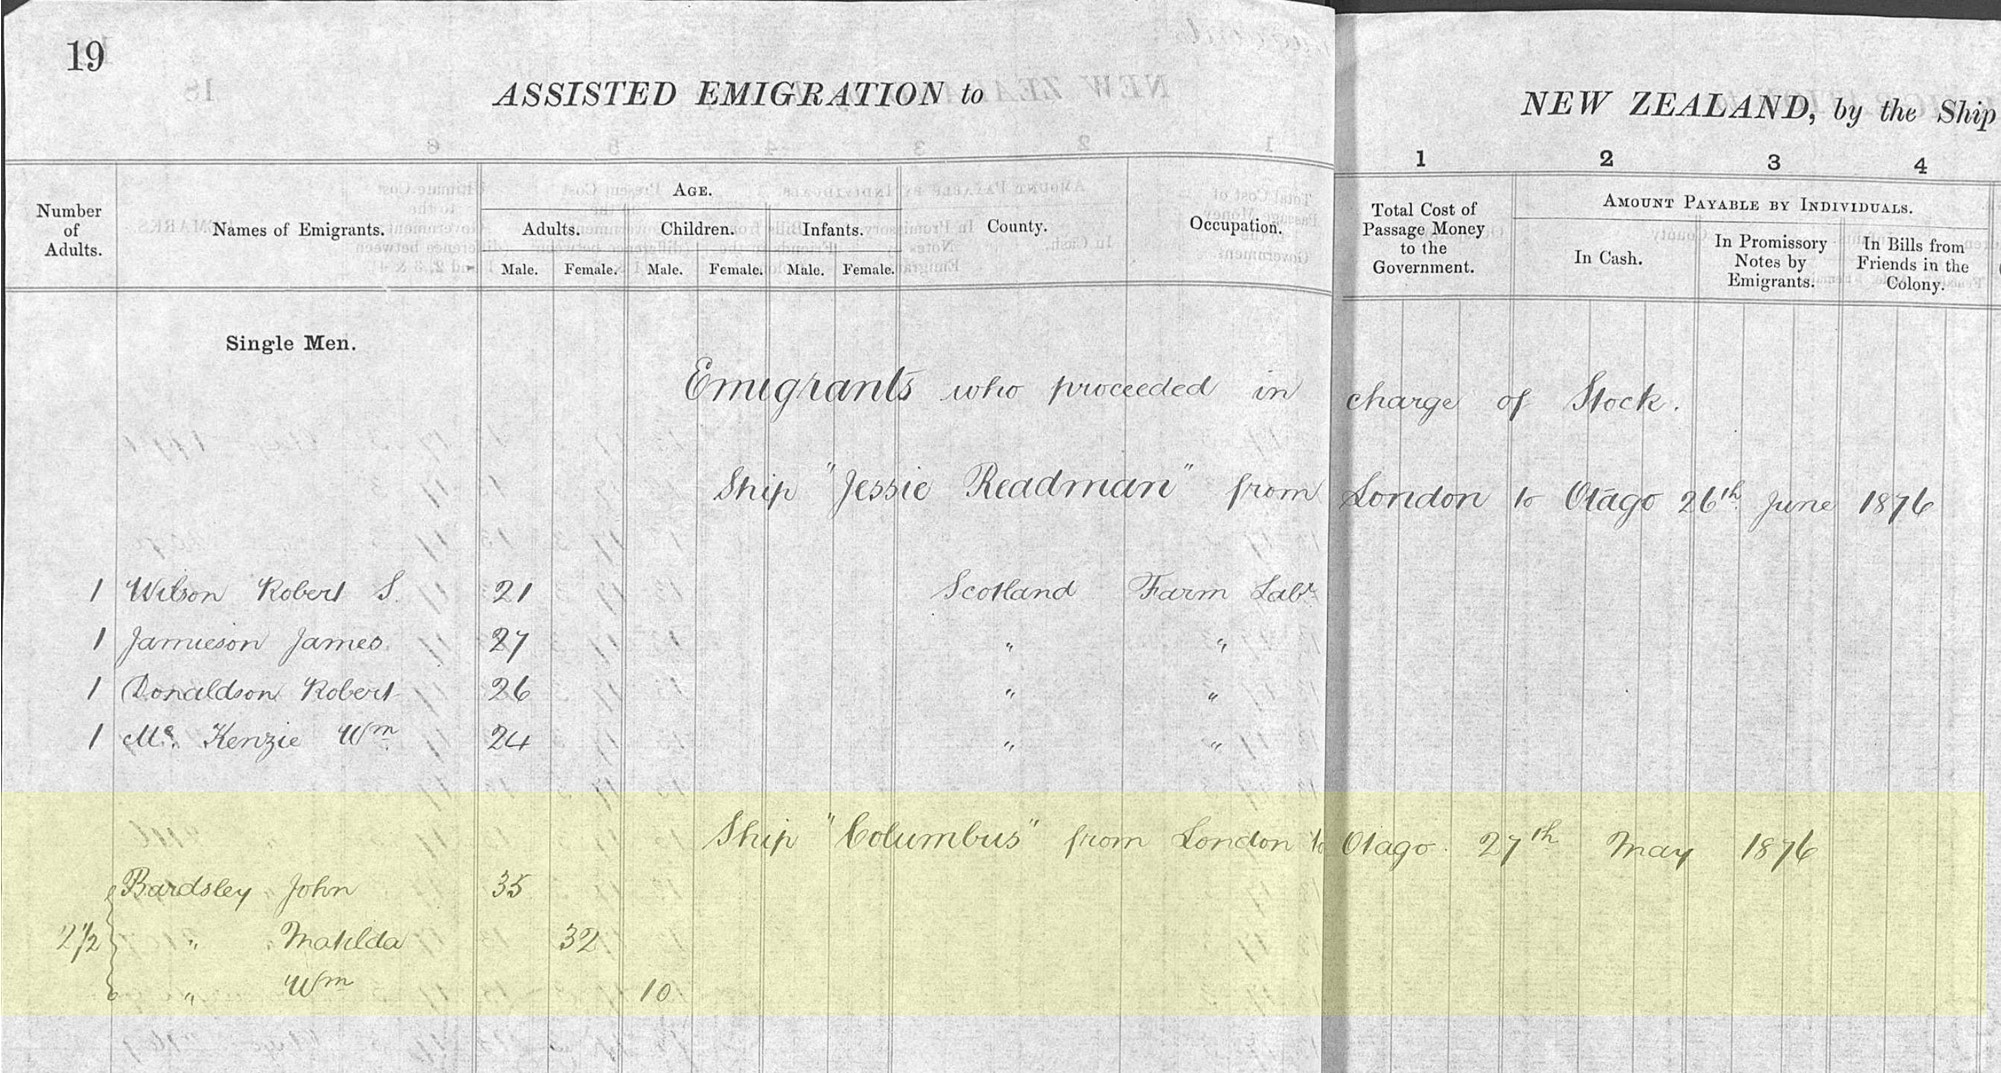 19
ASSISTED EMIGRATION to NEW ZEALAND, by the Ship
1 2 3 4
Number of Adults.
Names of Emigrants.
AGE.
Adults. Children. Infants.
Male. Female. Male. Female. Male. Female.
County.
Occupation.
Total Cost of Passage Money to the Government.
AMOUNT PAYABLE BY INDIVIDUALS.
In Cash.
In Promissory Notes by Emigrants.
In Bills from Friends in the Colony.
Single Men.
Emigrants who proceeded in charge of Stock.
Ship "Jessie Readman" from London to Otago 26th June 1876
1 Wilson Robert S. 21 Scotland Farm Labr
1 Jamieson James 27 " "
1 Donaldson Robert 26 " "
1 Mc. Kenzie Wm 24 " "
Ship "Columbus" from London to Otago. 27th May 1876
Bardsley John 35
2 1/2 " Matilda 32
" Wm 10